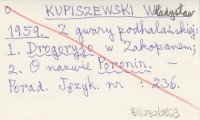 KUPISZEWSKI Władysław
1959. Z gwary podhalańskiej
1. Drogoryjo w Zakopanem;
2. O nazwie Poronin. –
Porad. Język. nr : 236.